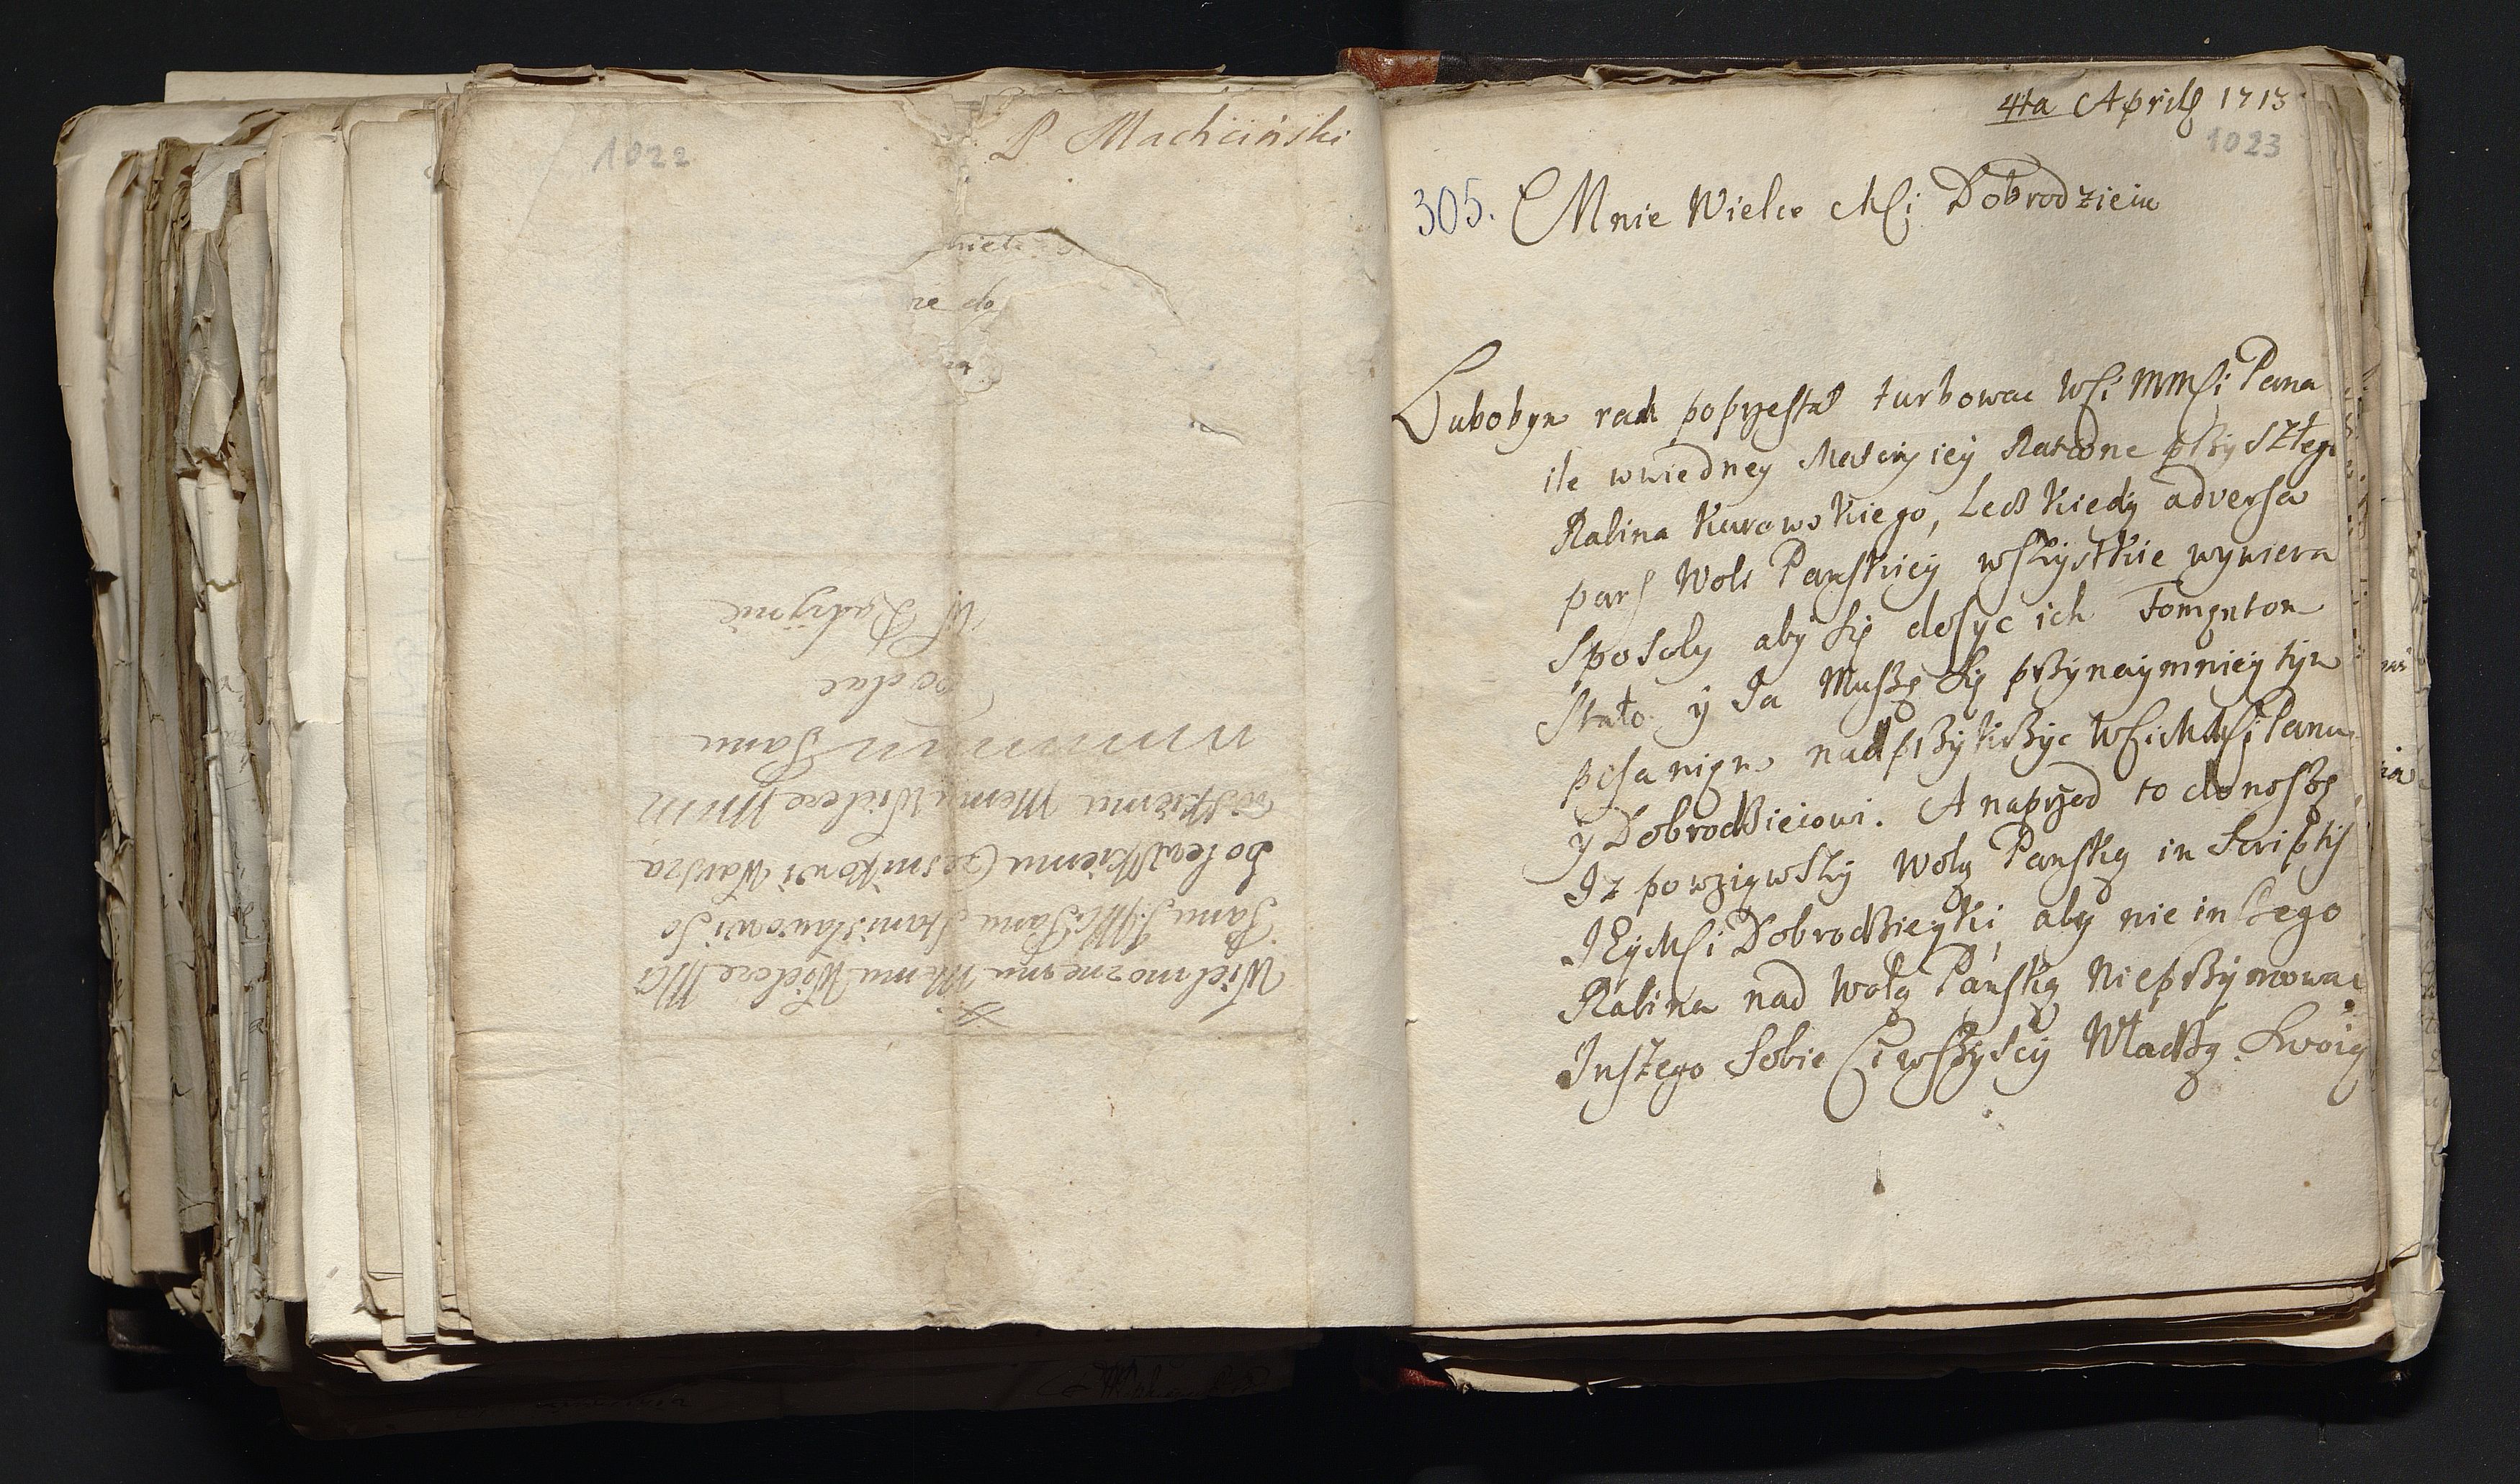 1022
P Machciński
niele
re do
ra
Wielmoznemu Memu Wielce Mći
Panu JMći Panu Stanisławowi So
bolewskiemu Czesnikowi Warsza
wskiemu Memu Wielce MM
Panu
oddac
W Radzyniu
4ta Aprilis 1713
1023
305. Mnie Wielce Mſi Dobrodzieiu
Lubobym rad poprzestał turbowac WſiMMſi Pana
ile w iedney Materyiey Ratione przyszłego
Rabina Kurowskiego, Lecz kiedy adversa
pars Woli Panskiey wszystkie wywiera
sposoby aby się dosyc ich
stało y Ja Muszę się przynaymniey tym
pisanięm naprzykrzyc WſiMMſi Panu
y Dobrodzieiowi. A naprzod to donoszę
Iz powziąwszy Wolą Panską in Scriptis
JEyMſi Dobrodzieyki, aby nie inszego
Rabina nad Wolą Pańską nieprzymowac
Inszego Sobie Ci wszyscy Władzą Swoią